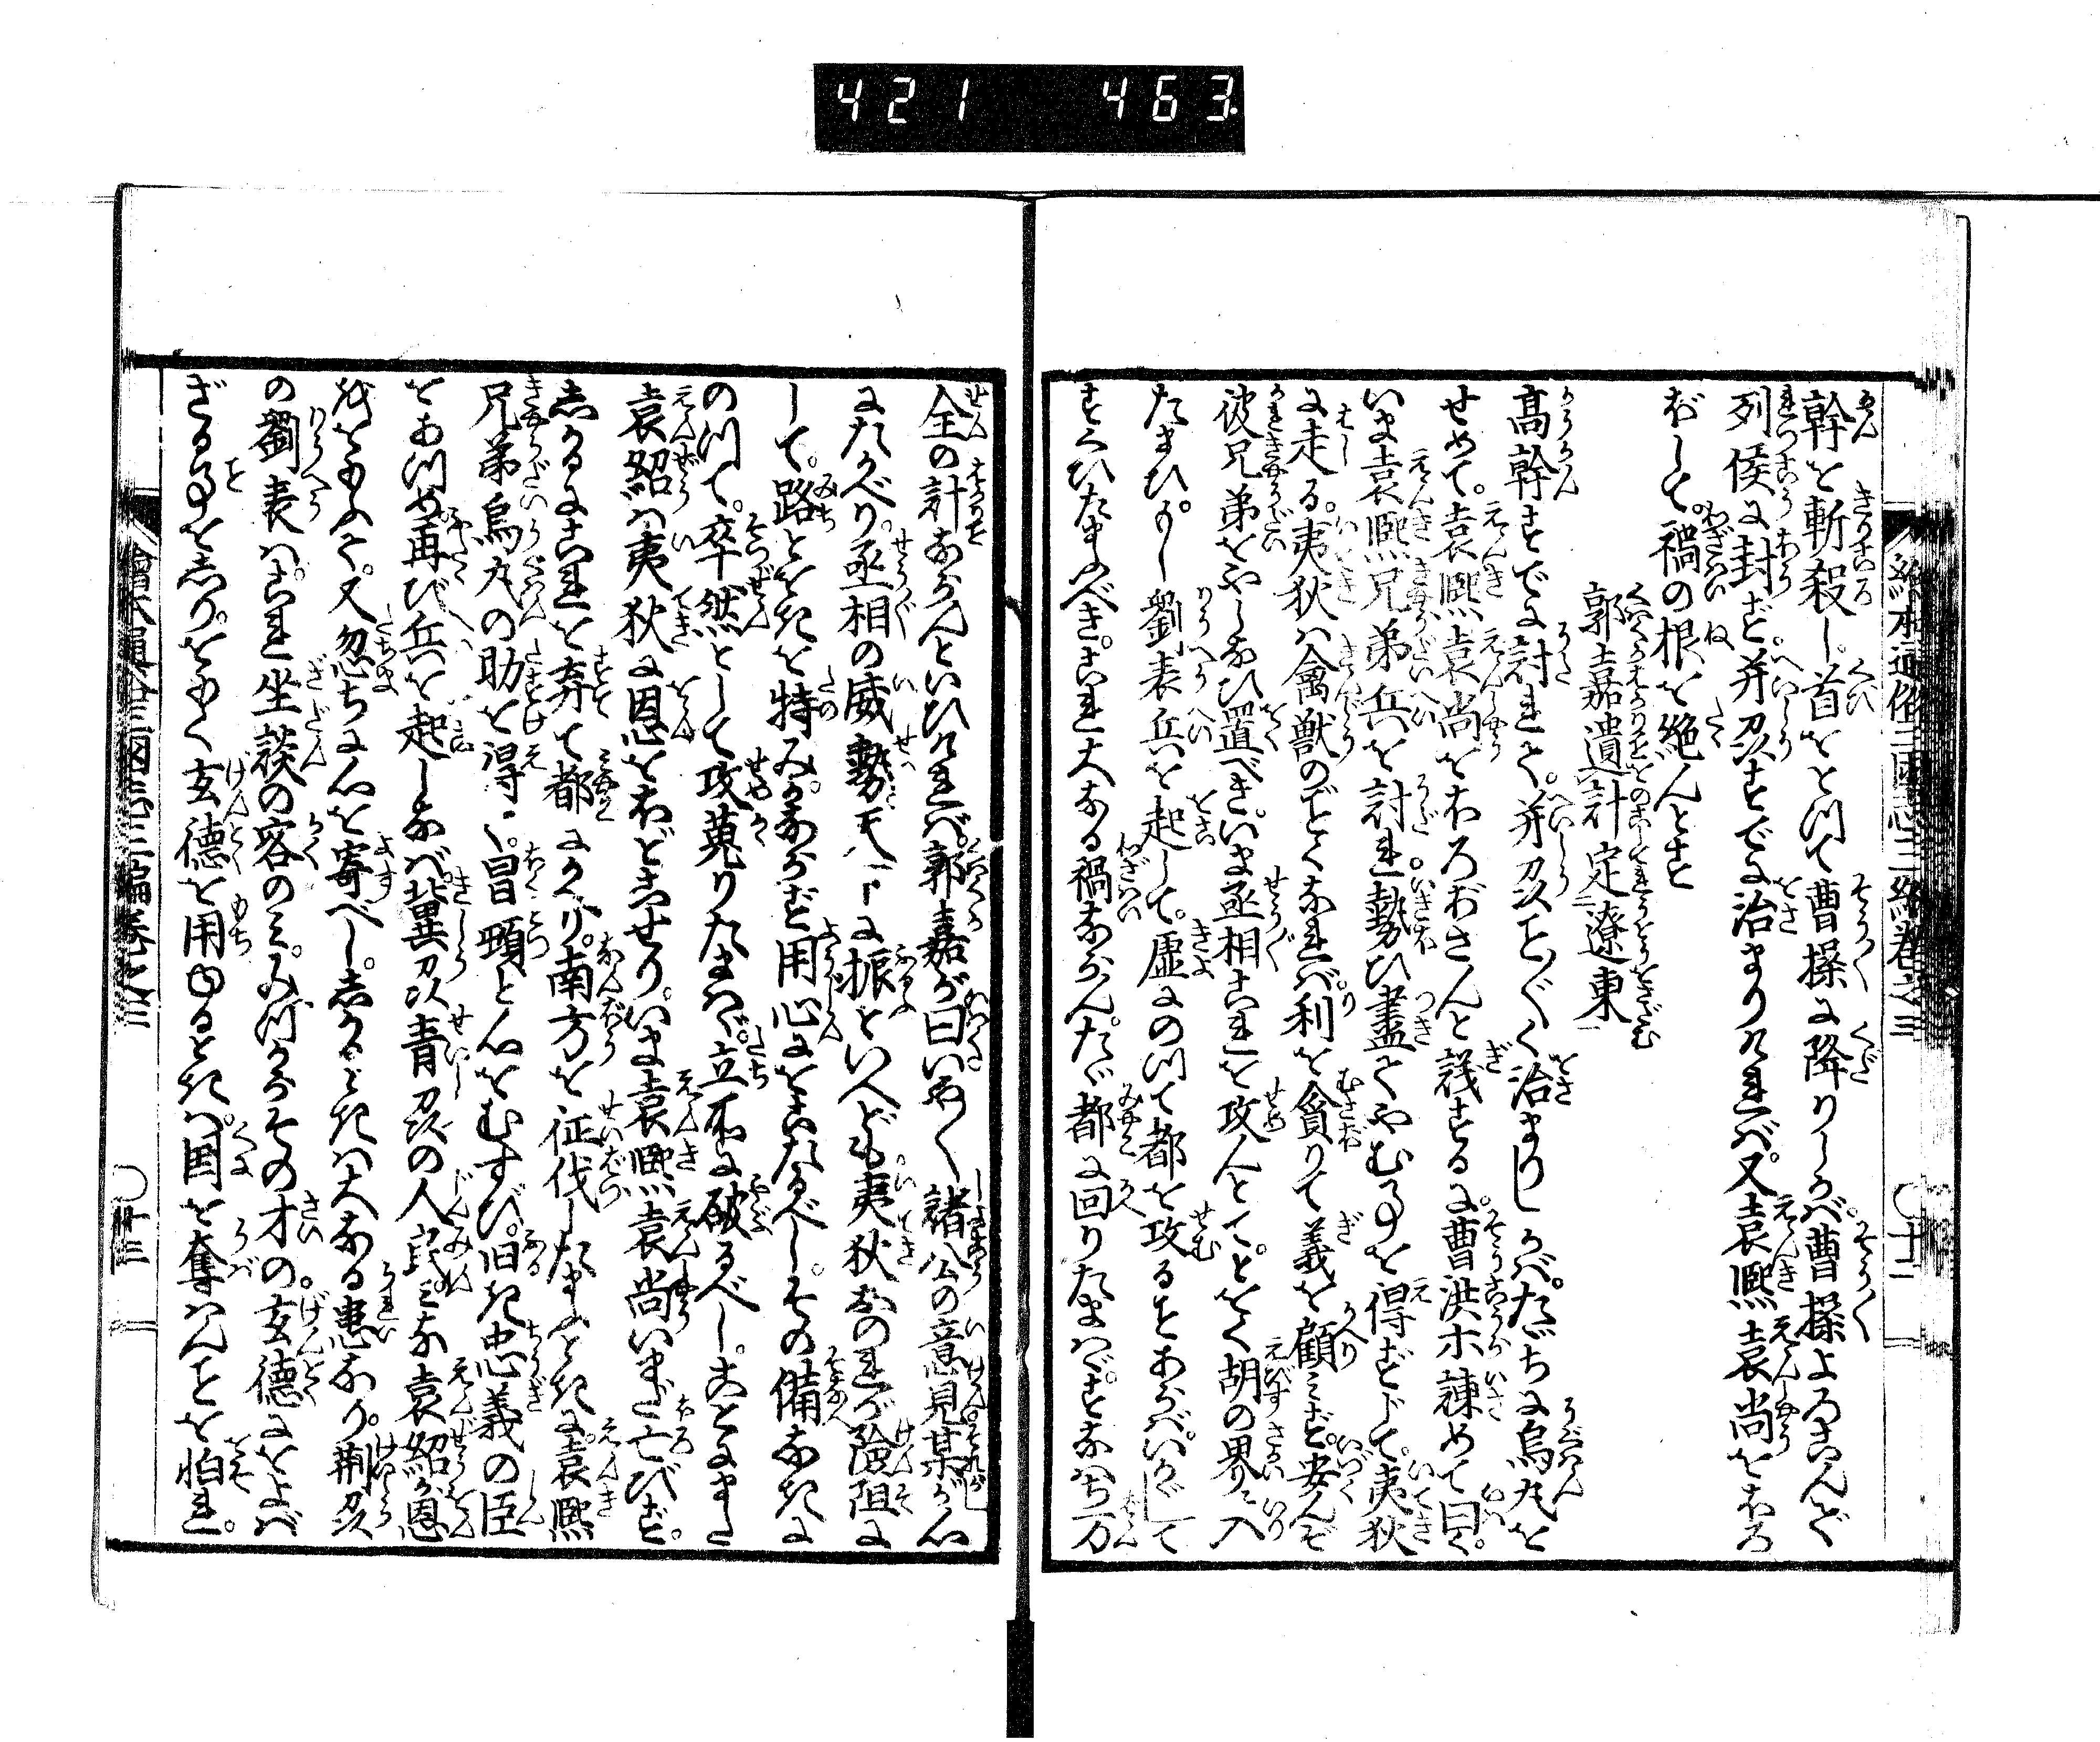 421 463
繪本通俗三國志三編卷之三 〇十二
幹を斬殺し。首をとつて曹操に降りしかバ。曹操よろこんで
列侯に封ず。并州すでに治まりけれバ。又袁熙袁尚をほろ
ぼして。禍の根を絶んとす
郭嘉遺計定遼東
高幹すでに討れて。并州ことごとく治まりしかバ。たゞちに烏丸を
せめて。袁熙袁尚をほろぼさんと議するに。曹洪ホ諌めて曰く。
いま袁熙兄弟兵を討れ勢ひ盡てやむ事を得ずして。夷狄
に走る。夷狄ハ禽獣のごとくなれバ。利を貪りて義を顧ミず。安んぞ
彼兄弟をやしなひ置べき。いま丞相これを攻んとて。とをく胡の界に入
たまひ。もし劉表兵を起して。虚にのつて都を攻るヿあらバ。いかゞして
すくひたまふべき。これ大なる禍ならん。たゞ都に回りたまハゞ。すなハち万
全の計ならんといひけれバ。郭嘉が曰いやく諸公の意見某が心
にたがへり。丞相の威勢天下に振といへども。夷狄おのれが險阻に
して。路とをきを特み。かならず用心にをこたるべし。その備なきに
のつて。卒然として攻蒐りたまハゞ。立所に破るべし。ことにまた
袁紹ハ夷狄に恩をほどこせり。いま袁熙袁尚いまだ亡びず。
しかるにこれを弃て都にかへり。南方を征伐したまふときに。袁熙
兄弟烏丸の助を得て。冒頓と心をむすび。旧き忠義の臣
をあつめ。再び兵を起しなバ。冀州青州の人民ミな袁紹が恩
をおもふて。又忽ちに心を寄べし。しかるときハ大なる患なり。荊州
の劉表ハ。これ坐談の客のミ。みづからその才の。玄德にをよば
ざる事をしり。をもく玄德を用ゆるときハ。国を奪ハんヿを怕れ。
繪本通俗三國志三編卷之三 〇廿三